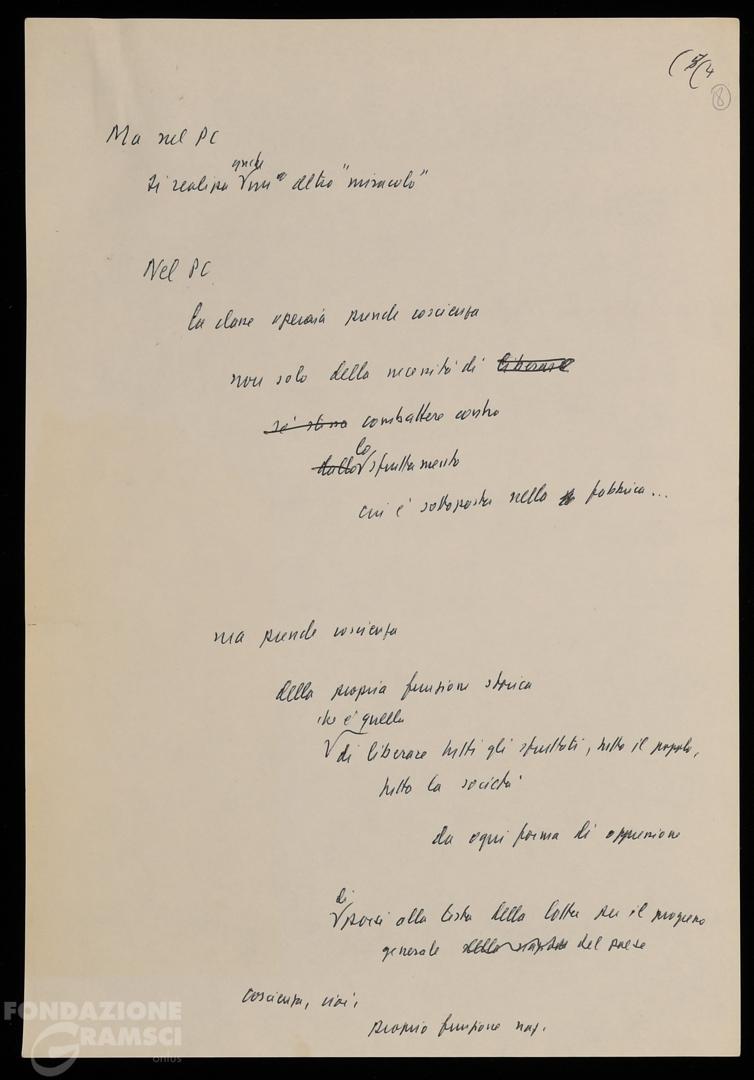 (7(4
8
Ma nel PC
anche
si realizza un altro "miracolo"
Nel PC
la classe operaia prende coscienza
non solo della necessità di liberare
sé stessa combattere contro
lo
dallo sfruttamento
cui è sottoposta nella fabbrica...
ma prende coscienza
della propria funzione storica
che è quella
di liberare tutti gli sfruttati, tutto il popolo,
tutta la società
da ogni forma di oppressione
di
porsi alla testa della lotta per il progresso
generale della del paese
coscienza, cioè,
propria funzione naz.
FONDAZIONE
GRAMSCI
onlus